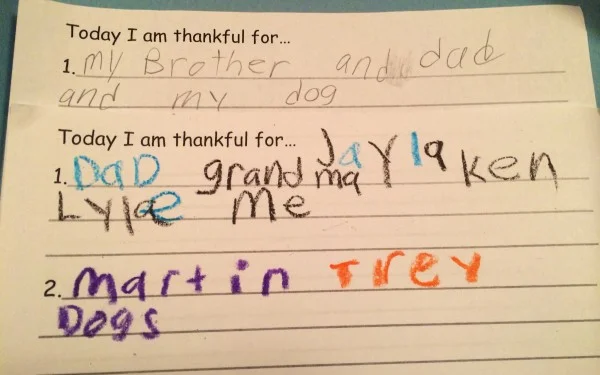 Today I am thankful for...
1. my Brother and dad
and my dog
Today I am thankful for...
1. DaD grandma Jayla ken
Lylae me
2. martin Trey
Dogs